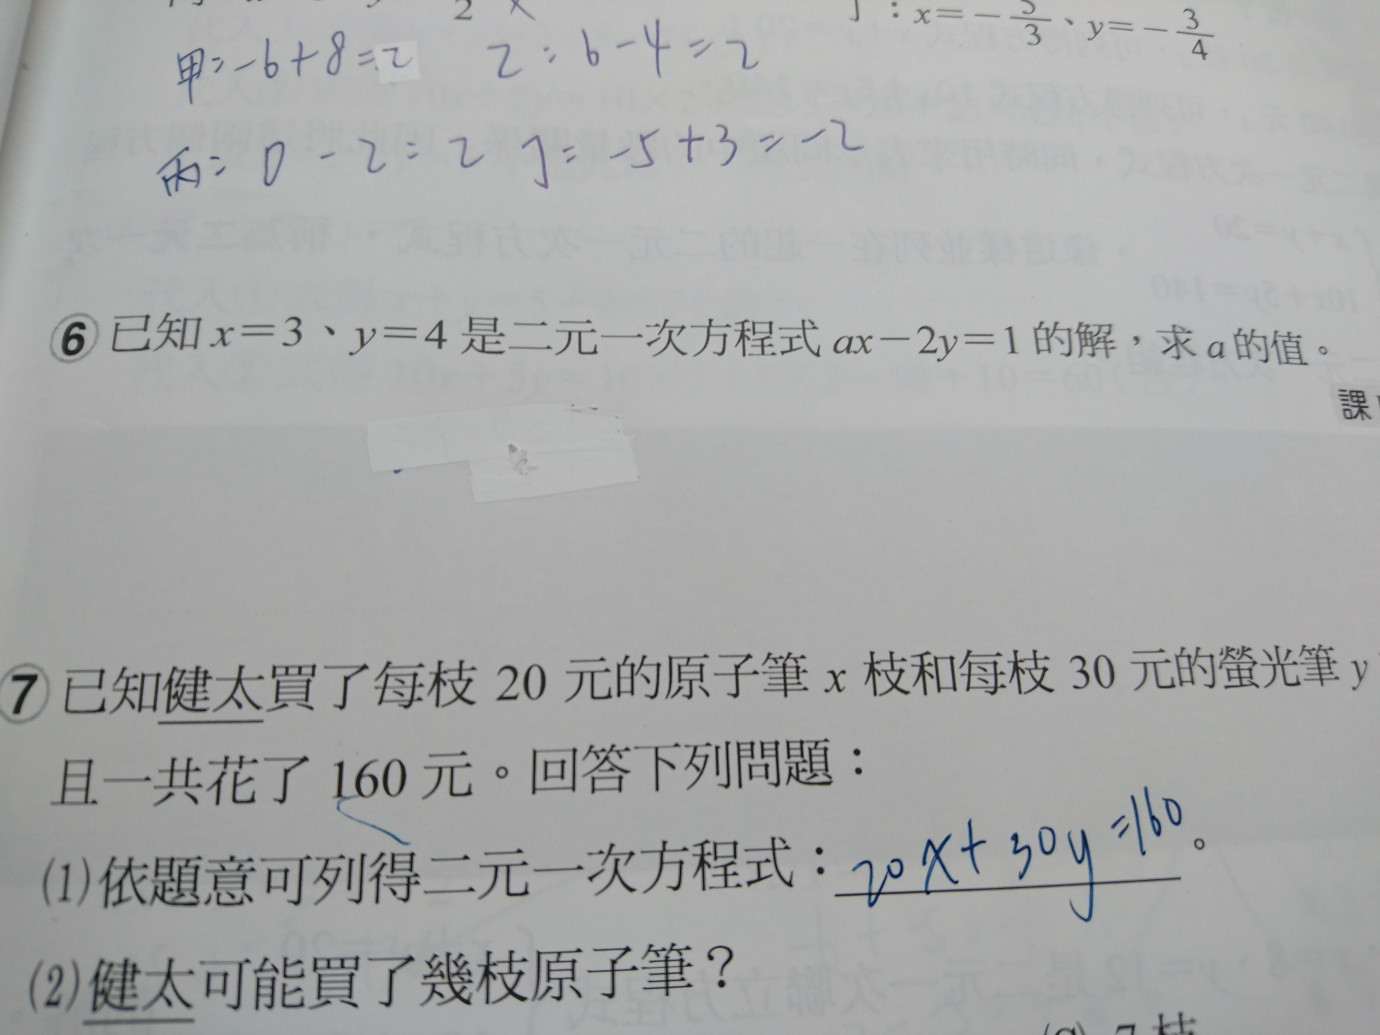 丁：x=-5/3、y=-3/4
甲=-6+8=2 乙:6-4=2
丙: 0-2=2 丁=-5+3=-2
6 已知x=3、y=4是二元一次方程式ax-2y=1的解，求a的值。
課
7 已知健太買了每枝 20 元的原子筆 x 枝和每枝 30 元的螢光筆 y
且一共花了 160 元。回答下列問題：
(1)依題意可列得二元一次方程式：20x+30y=160。
(2)健太可能買了幾枝原子筆？
7 枝